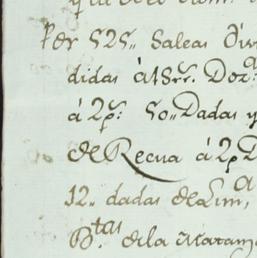 Por 525,, Saleas divi
didas á 18 rr. Doz.ª
á 2 p.s: 50,, Dadas y
de Recua á 2 p D
12,, dadas de Lim,ª
B.tas de la Matanz